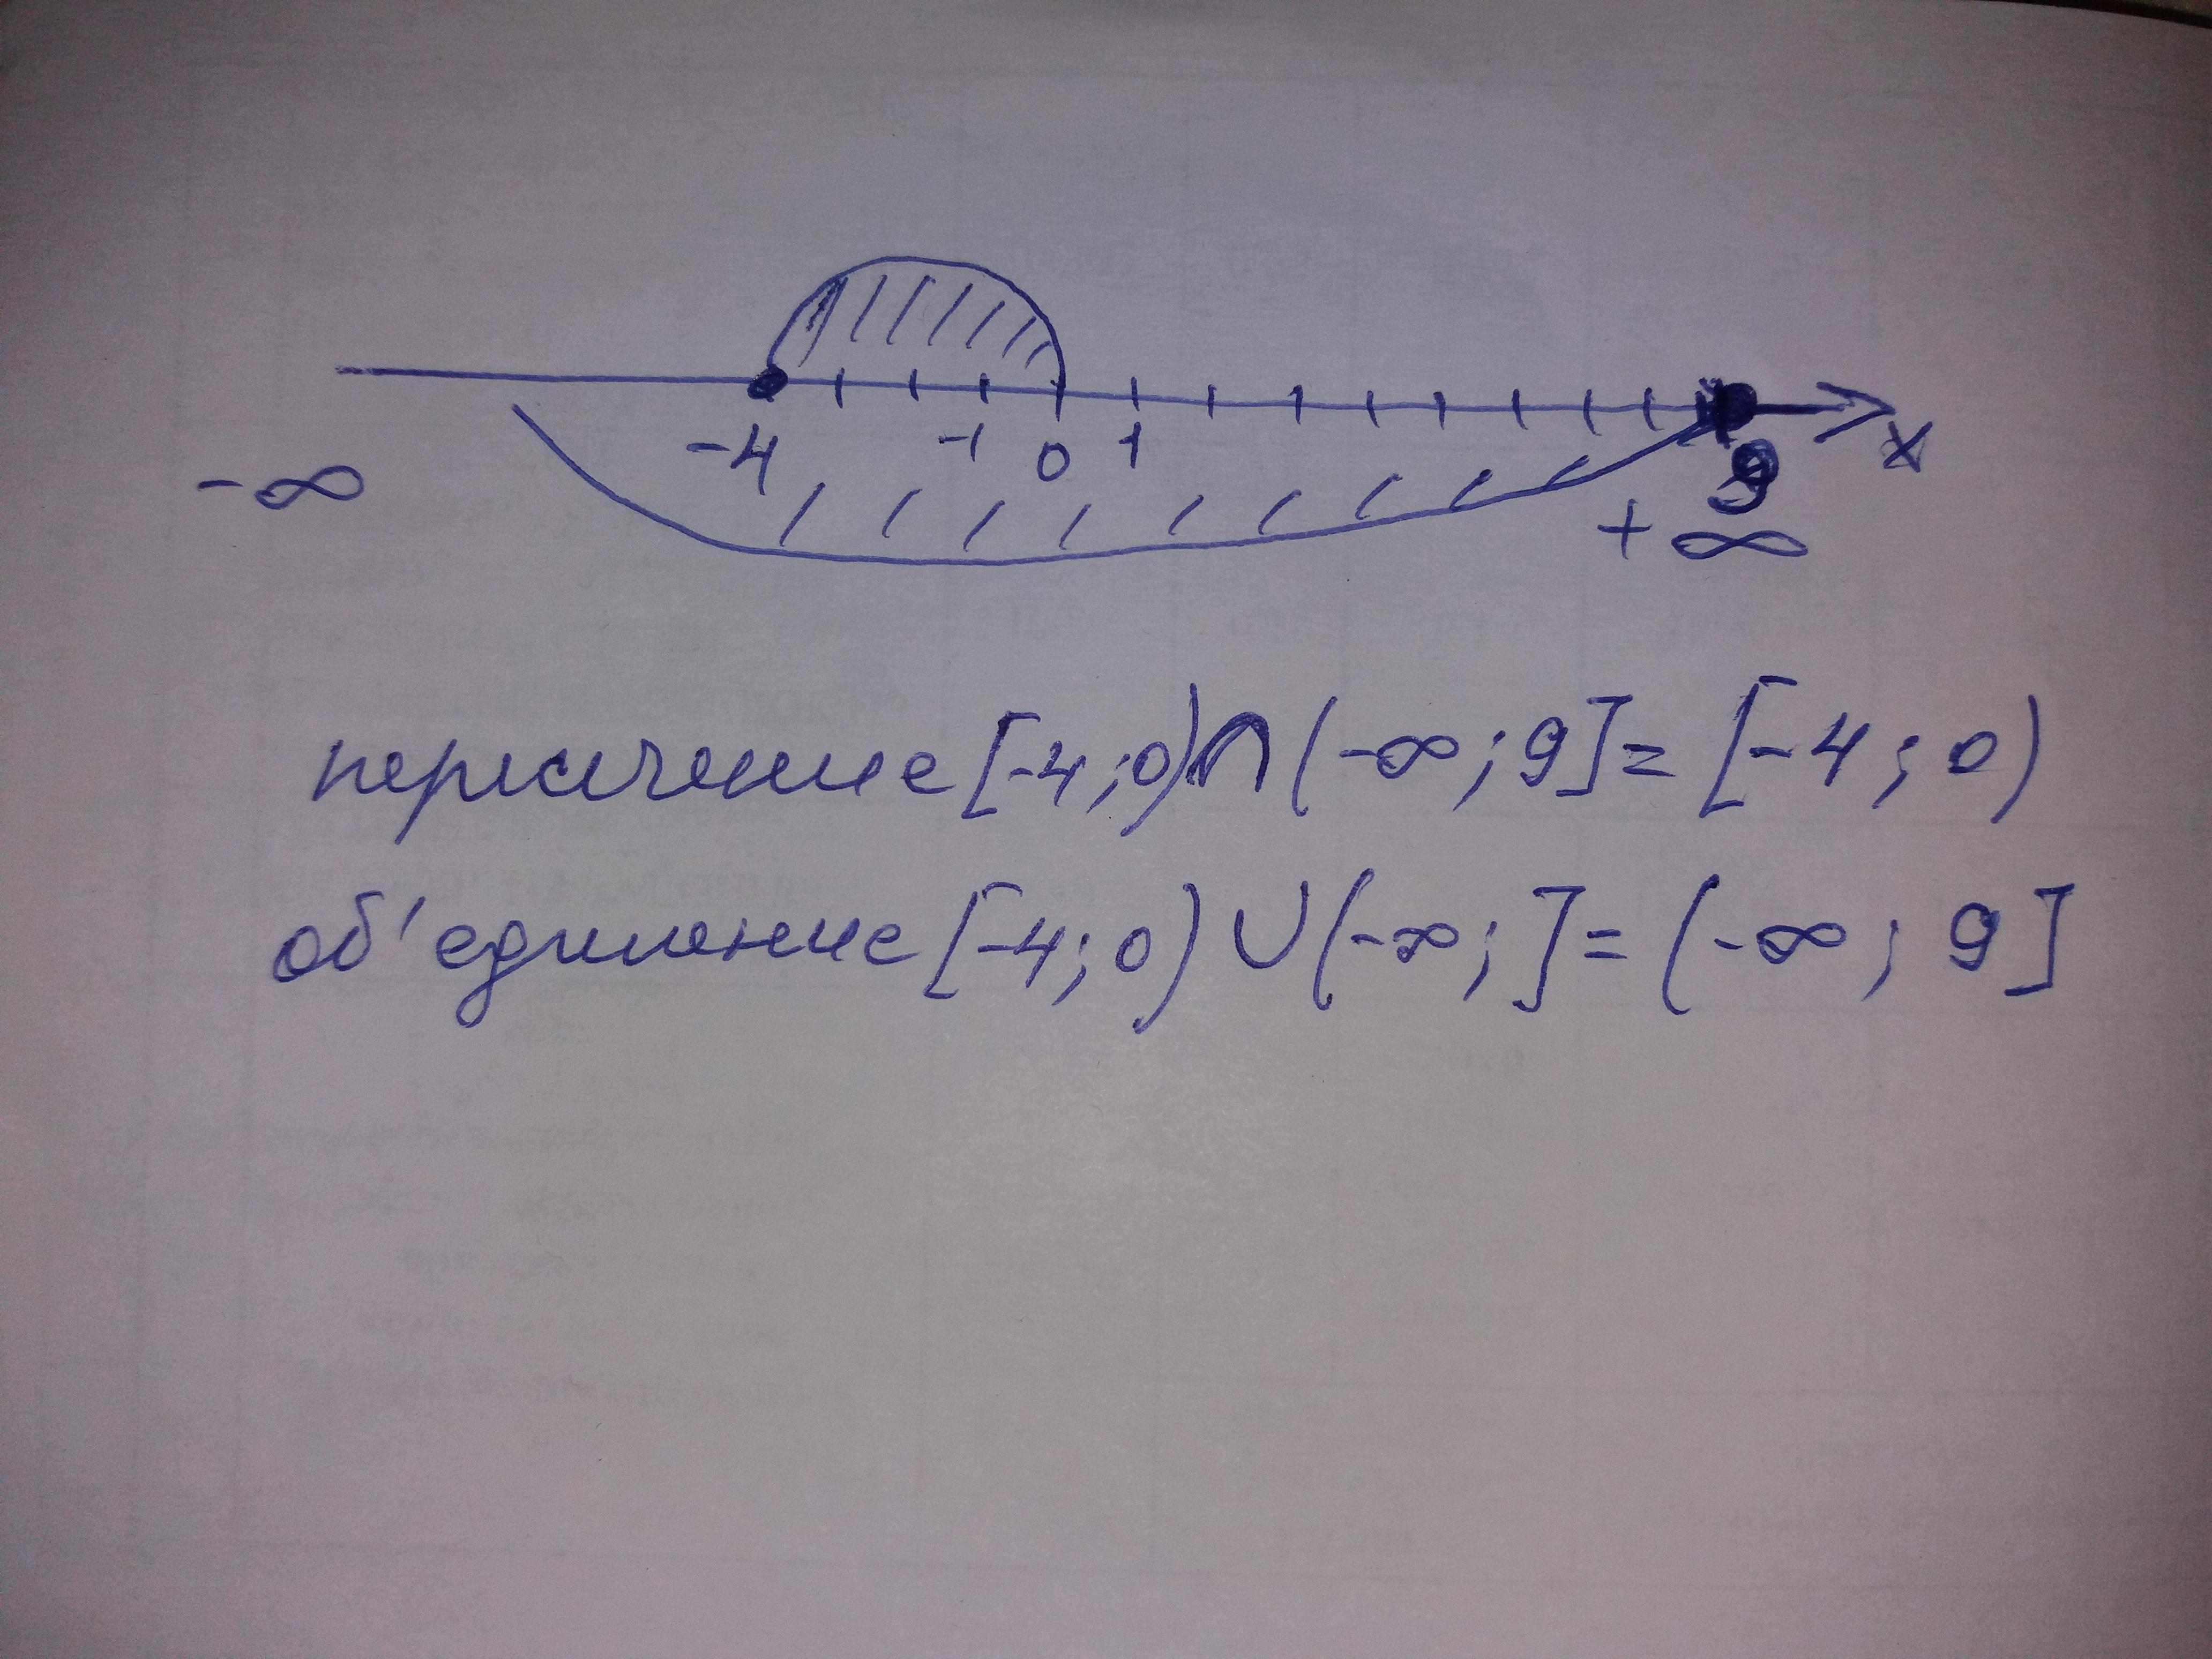 -4 -1 0 1 9 x
-∞ +∞
пересичение [-4;0)∩(-∞;9]=[-4;0)
об'единение [-4;0)∪(-∞;]=(-∞;9]